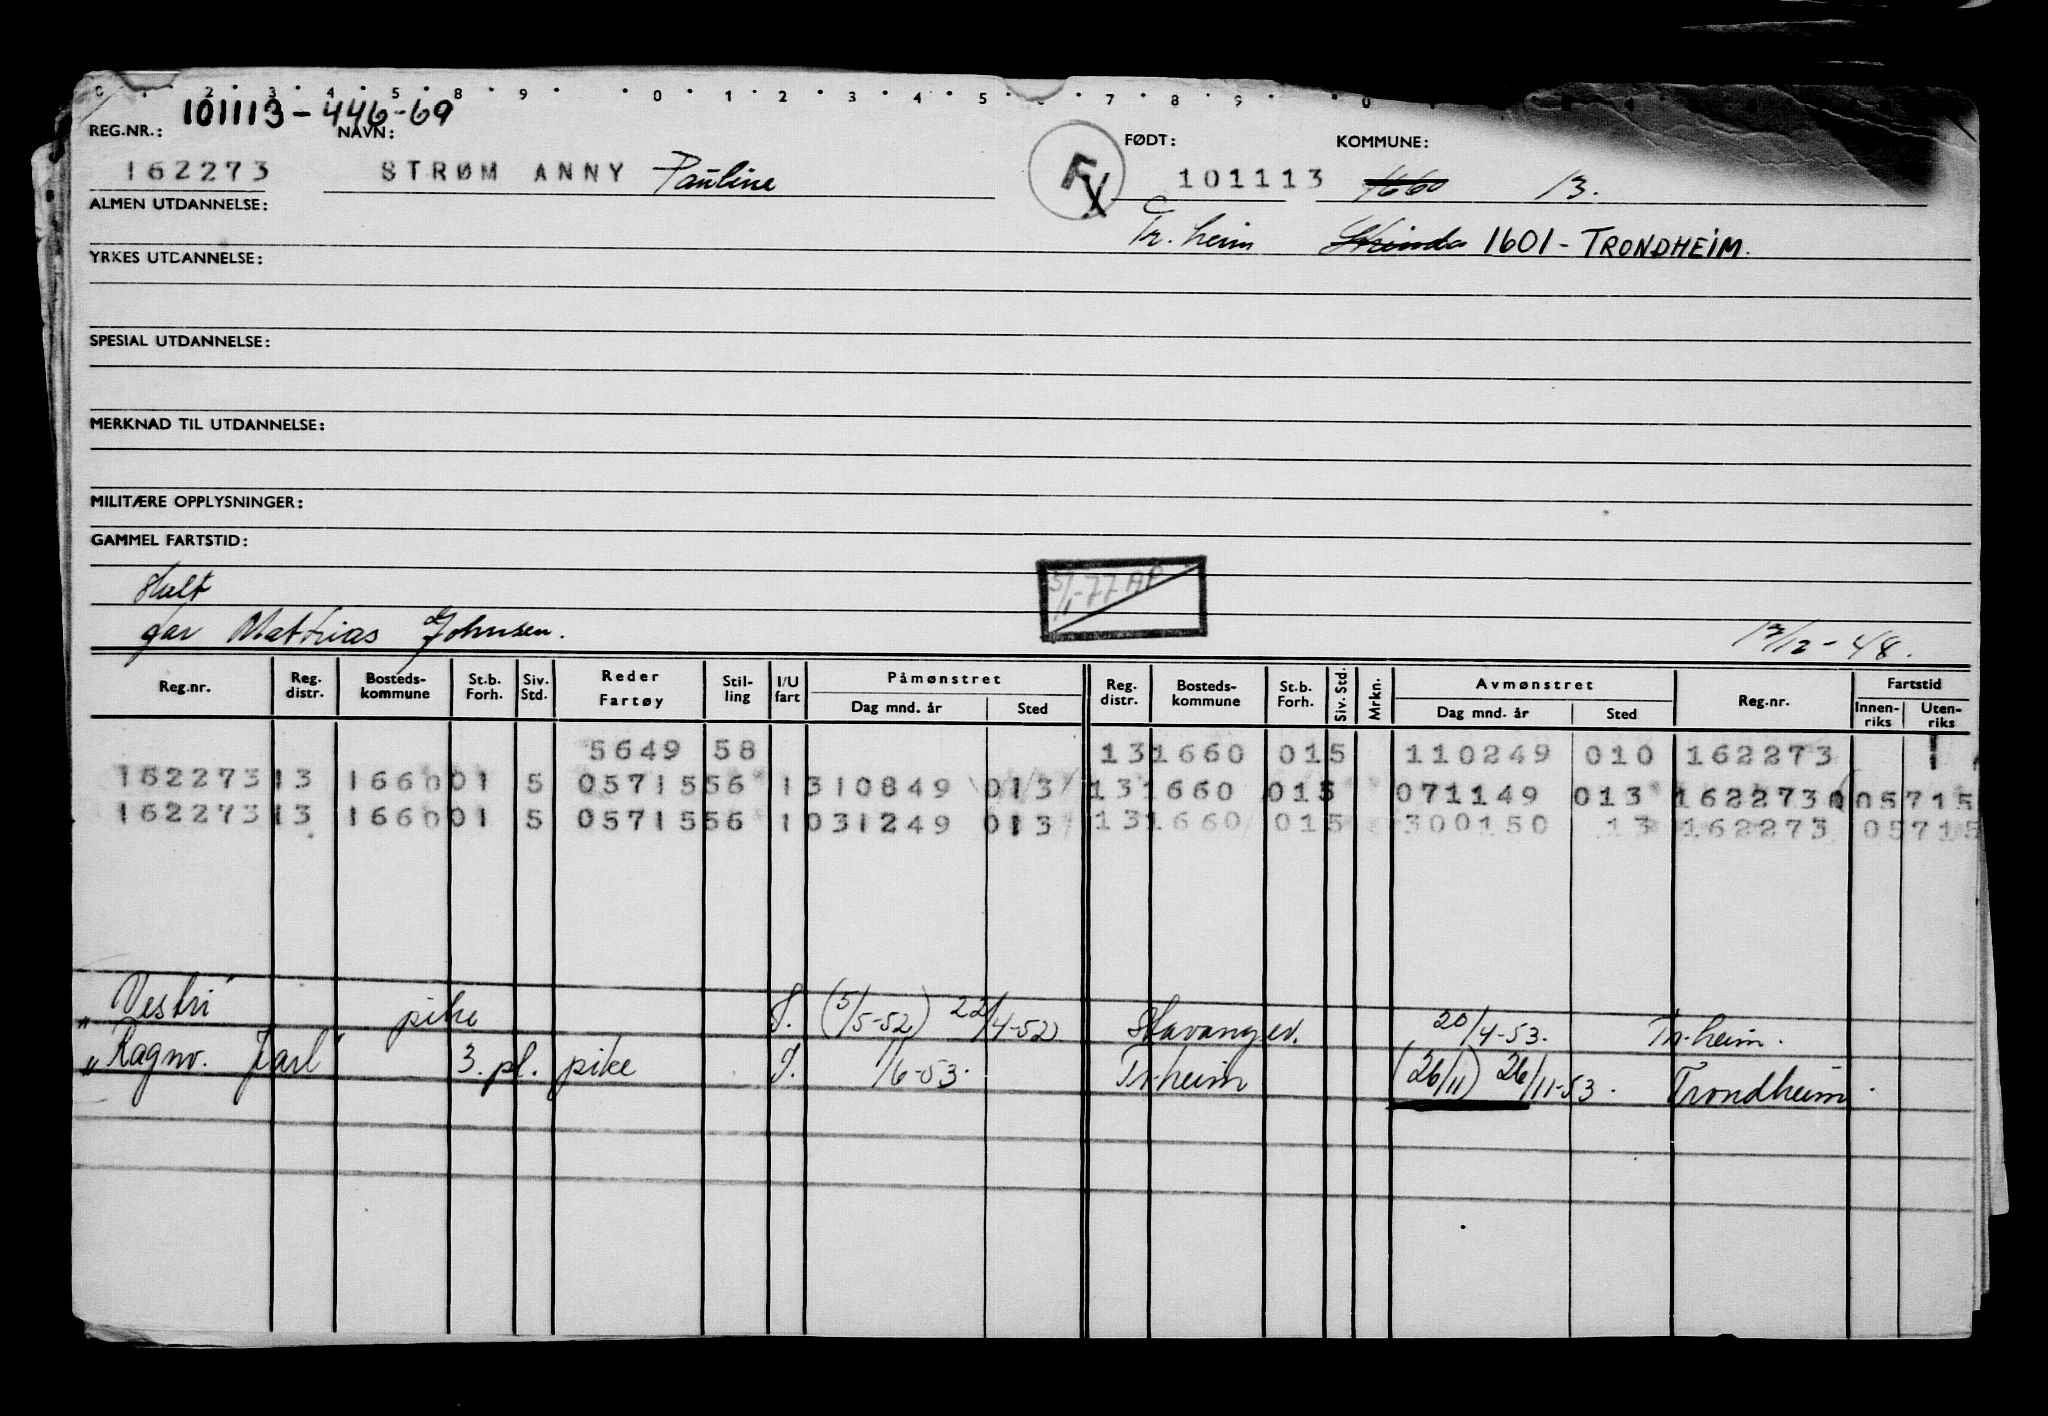 0 1 2 3 4 5 8 9 0 1 2 3 4 5 7 8 9 0
101113-446-69
REG.NR.: NAVN: FØDT: KOMMUNE:
162273 STRØM ANNY Pauline F 101113 1660 13.
ALMEN UTDANNELSE:
Tr.heim Strinda 1601 - TRONDHEIM.
YRKES UTDANNELSE:
SPESIAL UTDANNELSE:
MERKNAD TIL UTDANNELSE:
MILITÆRE OPPLYSNINGER:
GAMMEL FARTSTID:
5/1-77 AP
far Mattias Johnsen. 13/12-48.
Reg.nr. Reg. distr. Bosteds-kommune St.b. Forh. Siv. Std. Reder Fartøy Stil-ling I/U fart Påmønstret Dag mnd. år Sted Reg. distr. Bosteds-kommune St.b. Forh. Siv. Std. Mrkn. Avmønstret Dag mnd. år Sted Reg.nr. Fartstid Innen-riks Uten-riks
5649 58 13 1660 01 5 110249 010 162273 1
162273 13 1660 01 5 05715 56 1 310849 013 13 1660 01 5 071149 013 162273 05715
162273 13 1660 01 5 05715 56 1 031249 013 13 1660 01 5 300150 13 162273 05715
"Vestri" pike (5/5-52) 22/4-52 Stavanger. 20/4-53. Tr.heim.
"Ragnv. Jarl" 3. pl. pike 1/6-53. Tr.heim (26/11) 26/11-53. Trondheim.